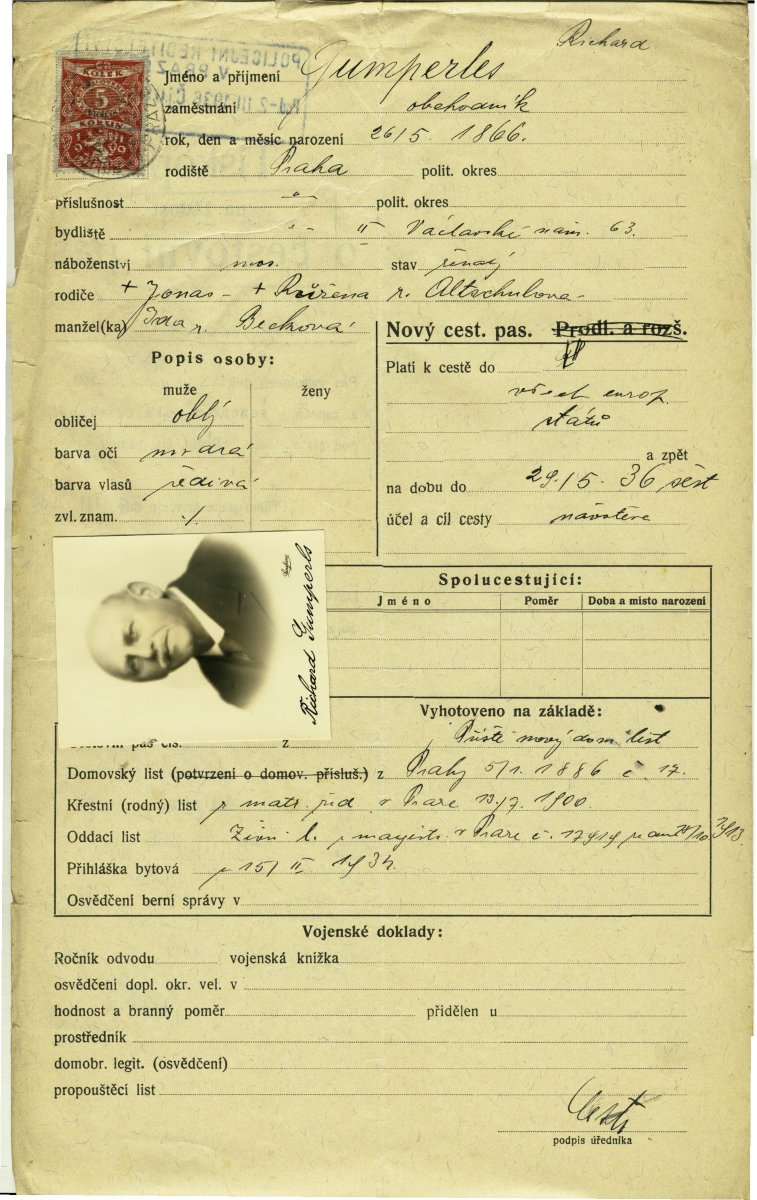 Richard
KOLEK
5
KORUN
Jméno a příjmení Gumperles
zaměstnání obchodník
rok, den a měsíc narození 26/5. 1866.
rodiště Praha polit. okres
příslušnost -"- polit. okres
bydliště -"- II Václavské nám. 63.
náboženství mos. stav ženatý
rodiče + Jonas - + Růžena r. Altschulova-
manžel(ka) Ida r. Becková
Popis osoby:
muže ženy
obličej oblý
barva očí modrá
barva vlasů šedivá
zvl. znam. ./.
Nový cest. pas. Prodl. a rozš.
Platí k cestě do
všech europ.
států
a zpět
na dobu do 29./5. 36 šest
účel a cíl cesty návštěva
Richard Gumperls
Spolucestující:
Jméno Poměr Doba a místo narození
Vyhotoveno na základě:
Cestovní pas čís. z Příště nový dom list
Domovský list (potvrzení o domov. přísluš.) z Prahy 5/1. 1886 č 17.
Křestní (rodný) list v Praze 1900.
Oddací list Živn. l. magistr. v Praze č. 17919
Přihláška bytová 15/ II 1934.
Osvědčení berní správy v
Vojenské doklady:
Ročník odvodu vojenská knížka
osvědčení dopl. okr. vel. v
hodnost a branný poměr přidělen u
prostředník
domobr. legit. (osvědčení)
propouštěcí list
podpis úředníka